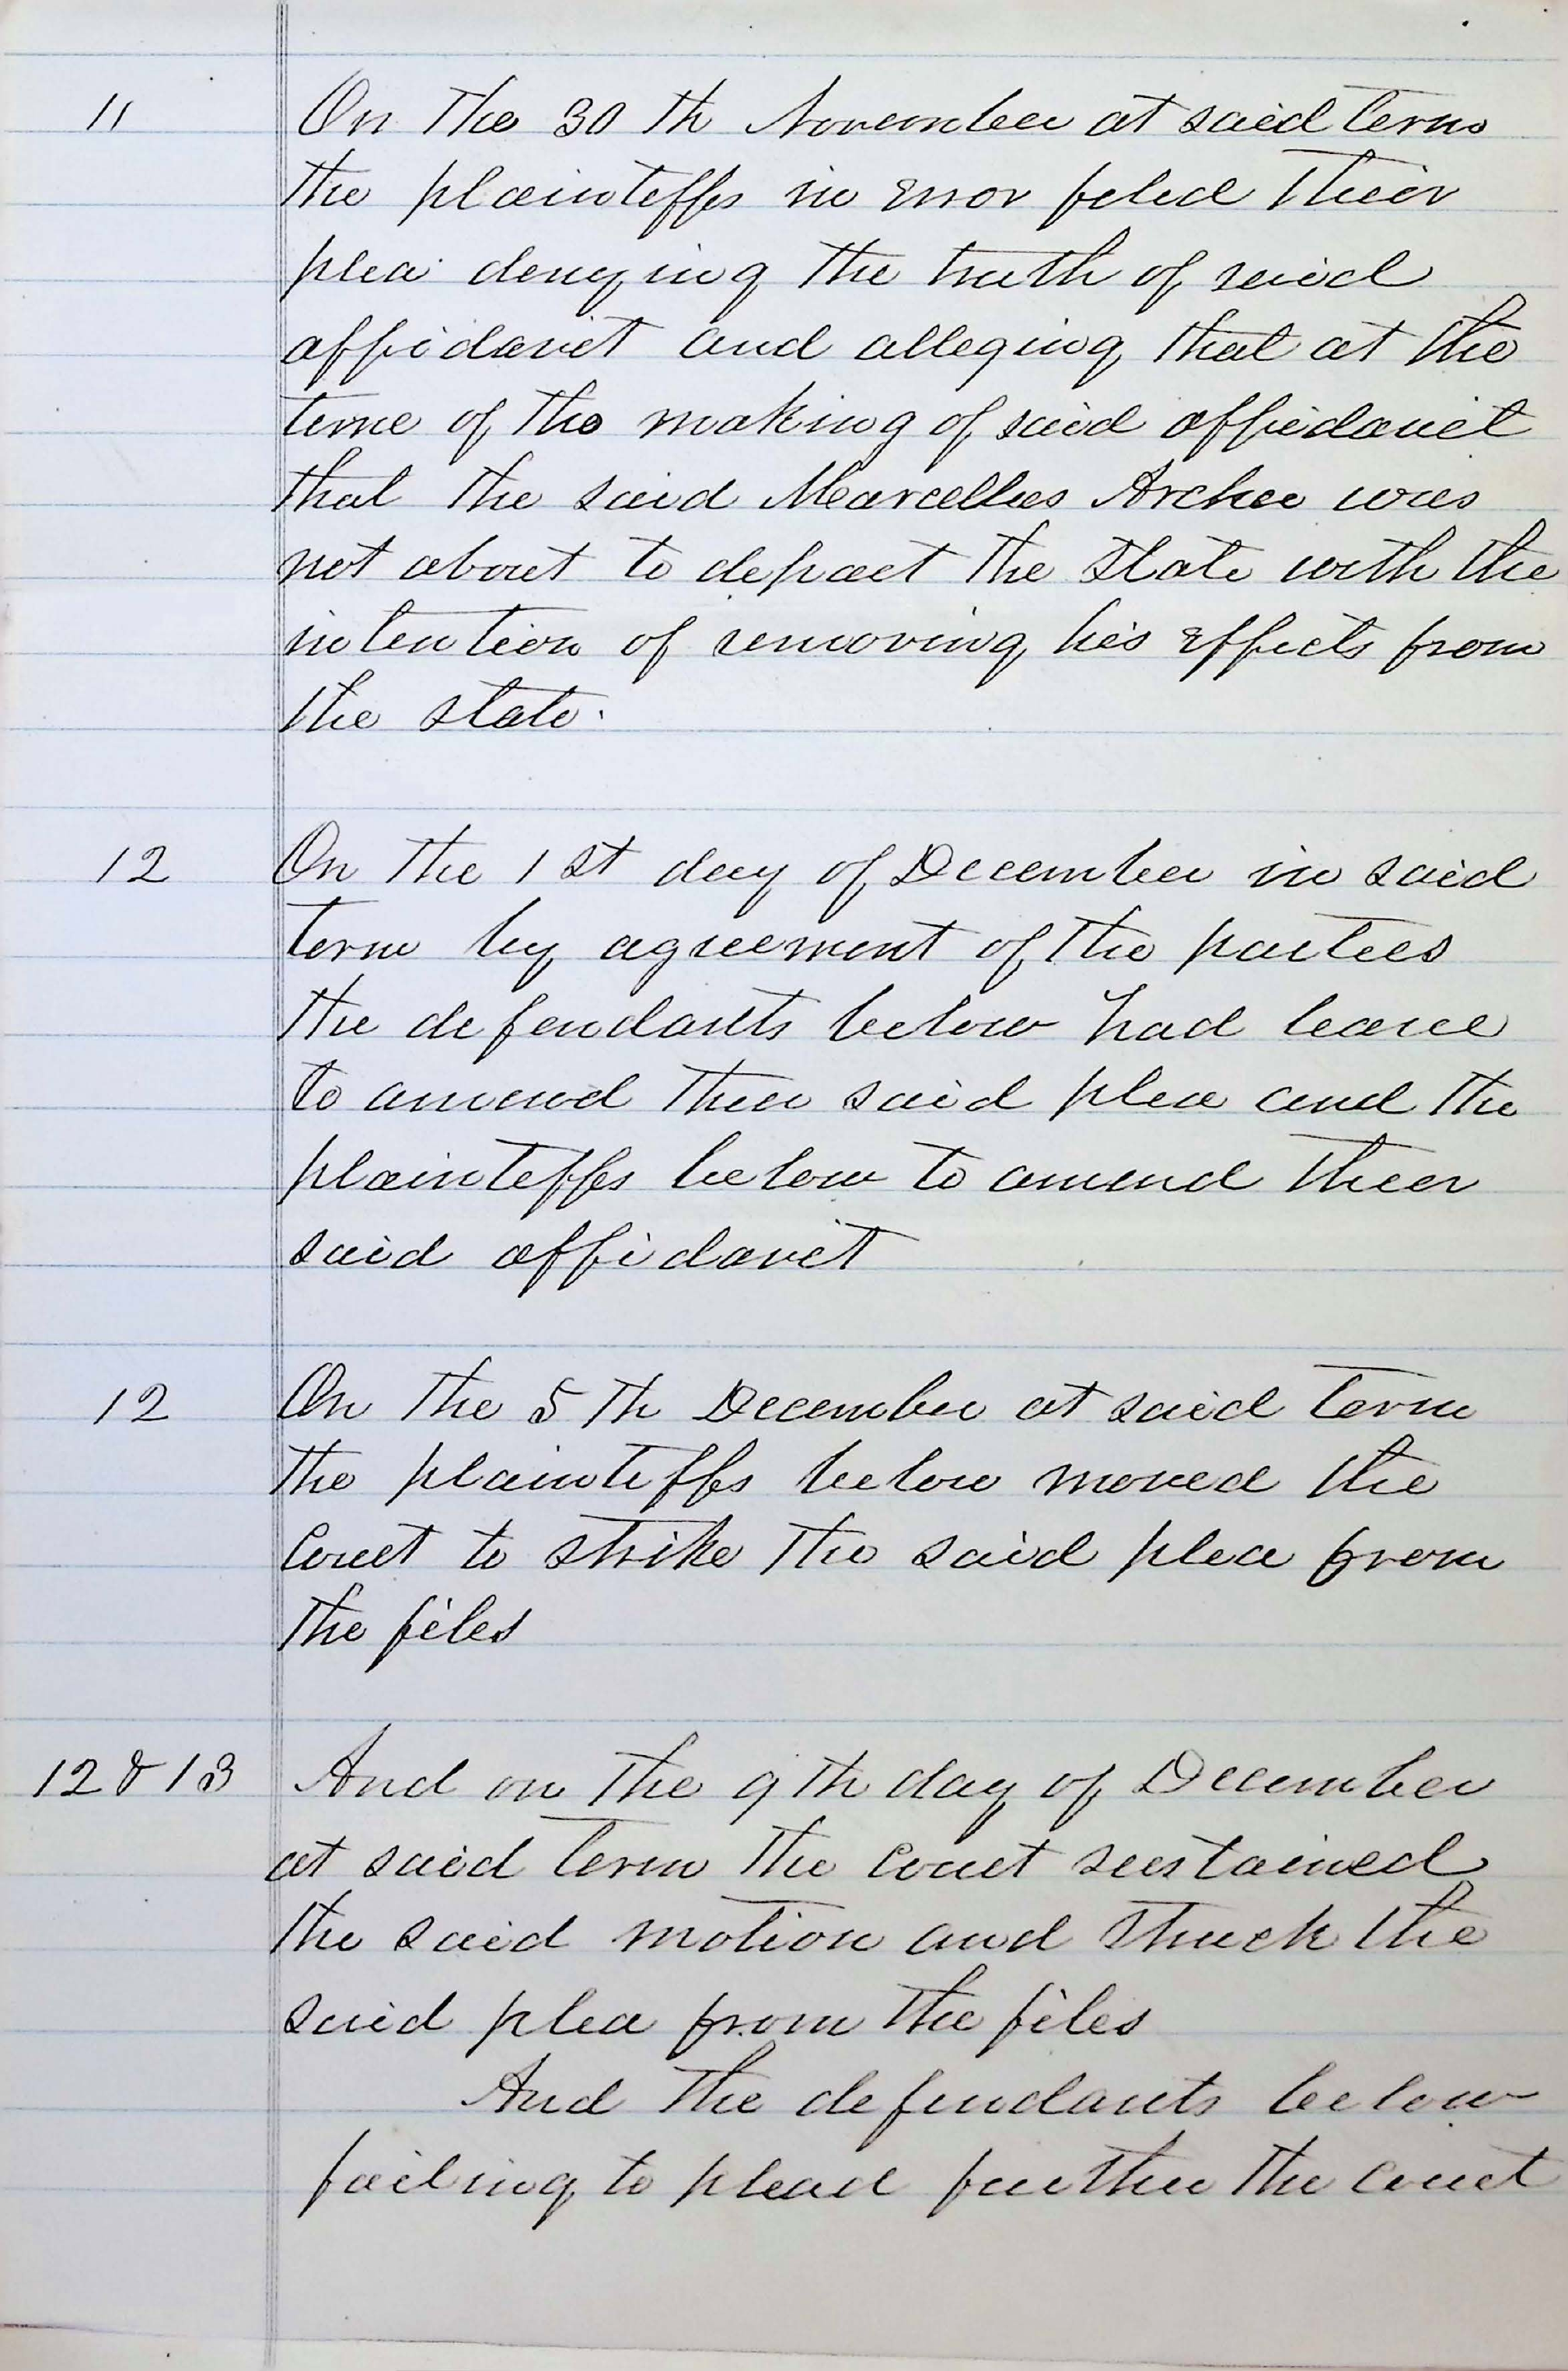 11 On the 30th November at said term
the plaintiffs in Error filed their
plea denying the truth of said
affidavit and alleging that at the
time of the making of said affidavit
that the said Marcellus Archer was
not about to depart the State with the
intention of removing his Effects from
the state.
12 On the 1st day of December in said
term by agreement of the parties
the defendants below had leave
to amend their said plea and the
plaintiffs below to amend their
said affidavit
12 On the 5th December at said term
the plaintiffs below moved the
Court to strike the said plea from
the files
12 & 13 And on the 9th day of December
at said term the Court sustained
the said motion and struck the
said plea from the files
And the defendants below
failing to plead further the court